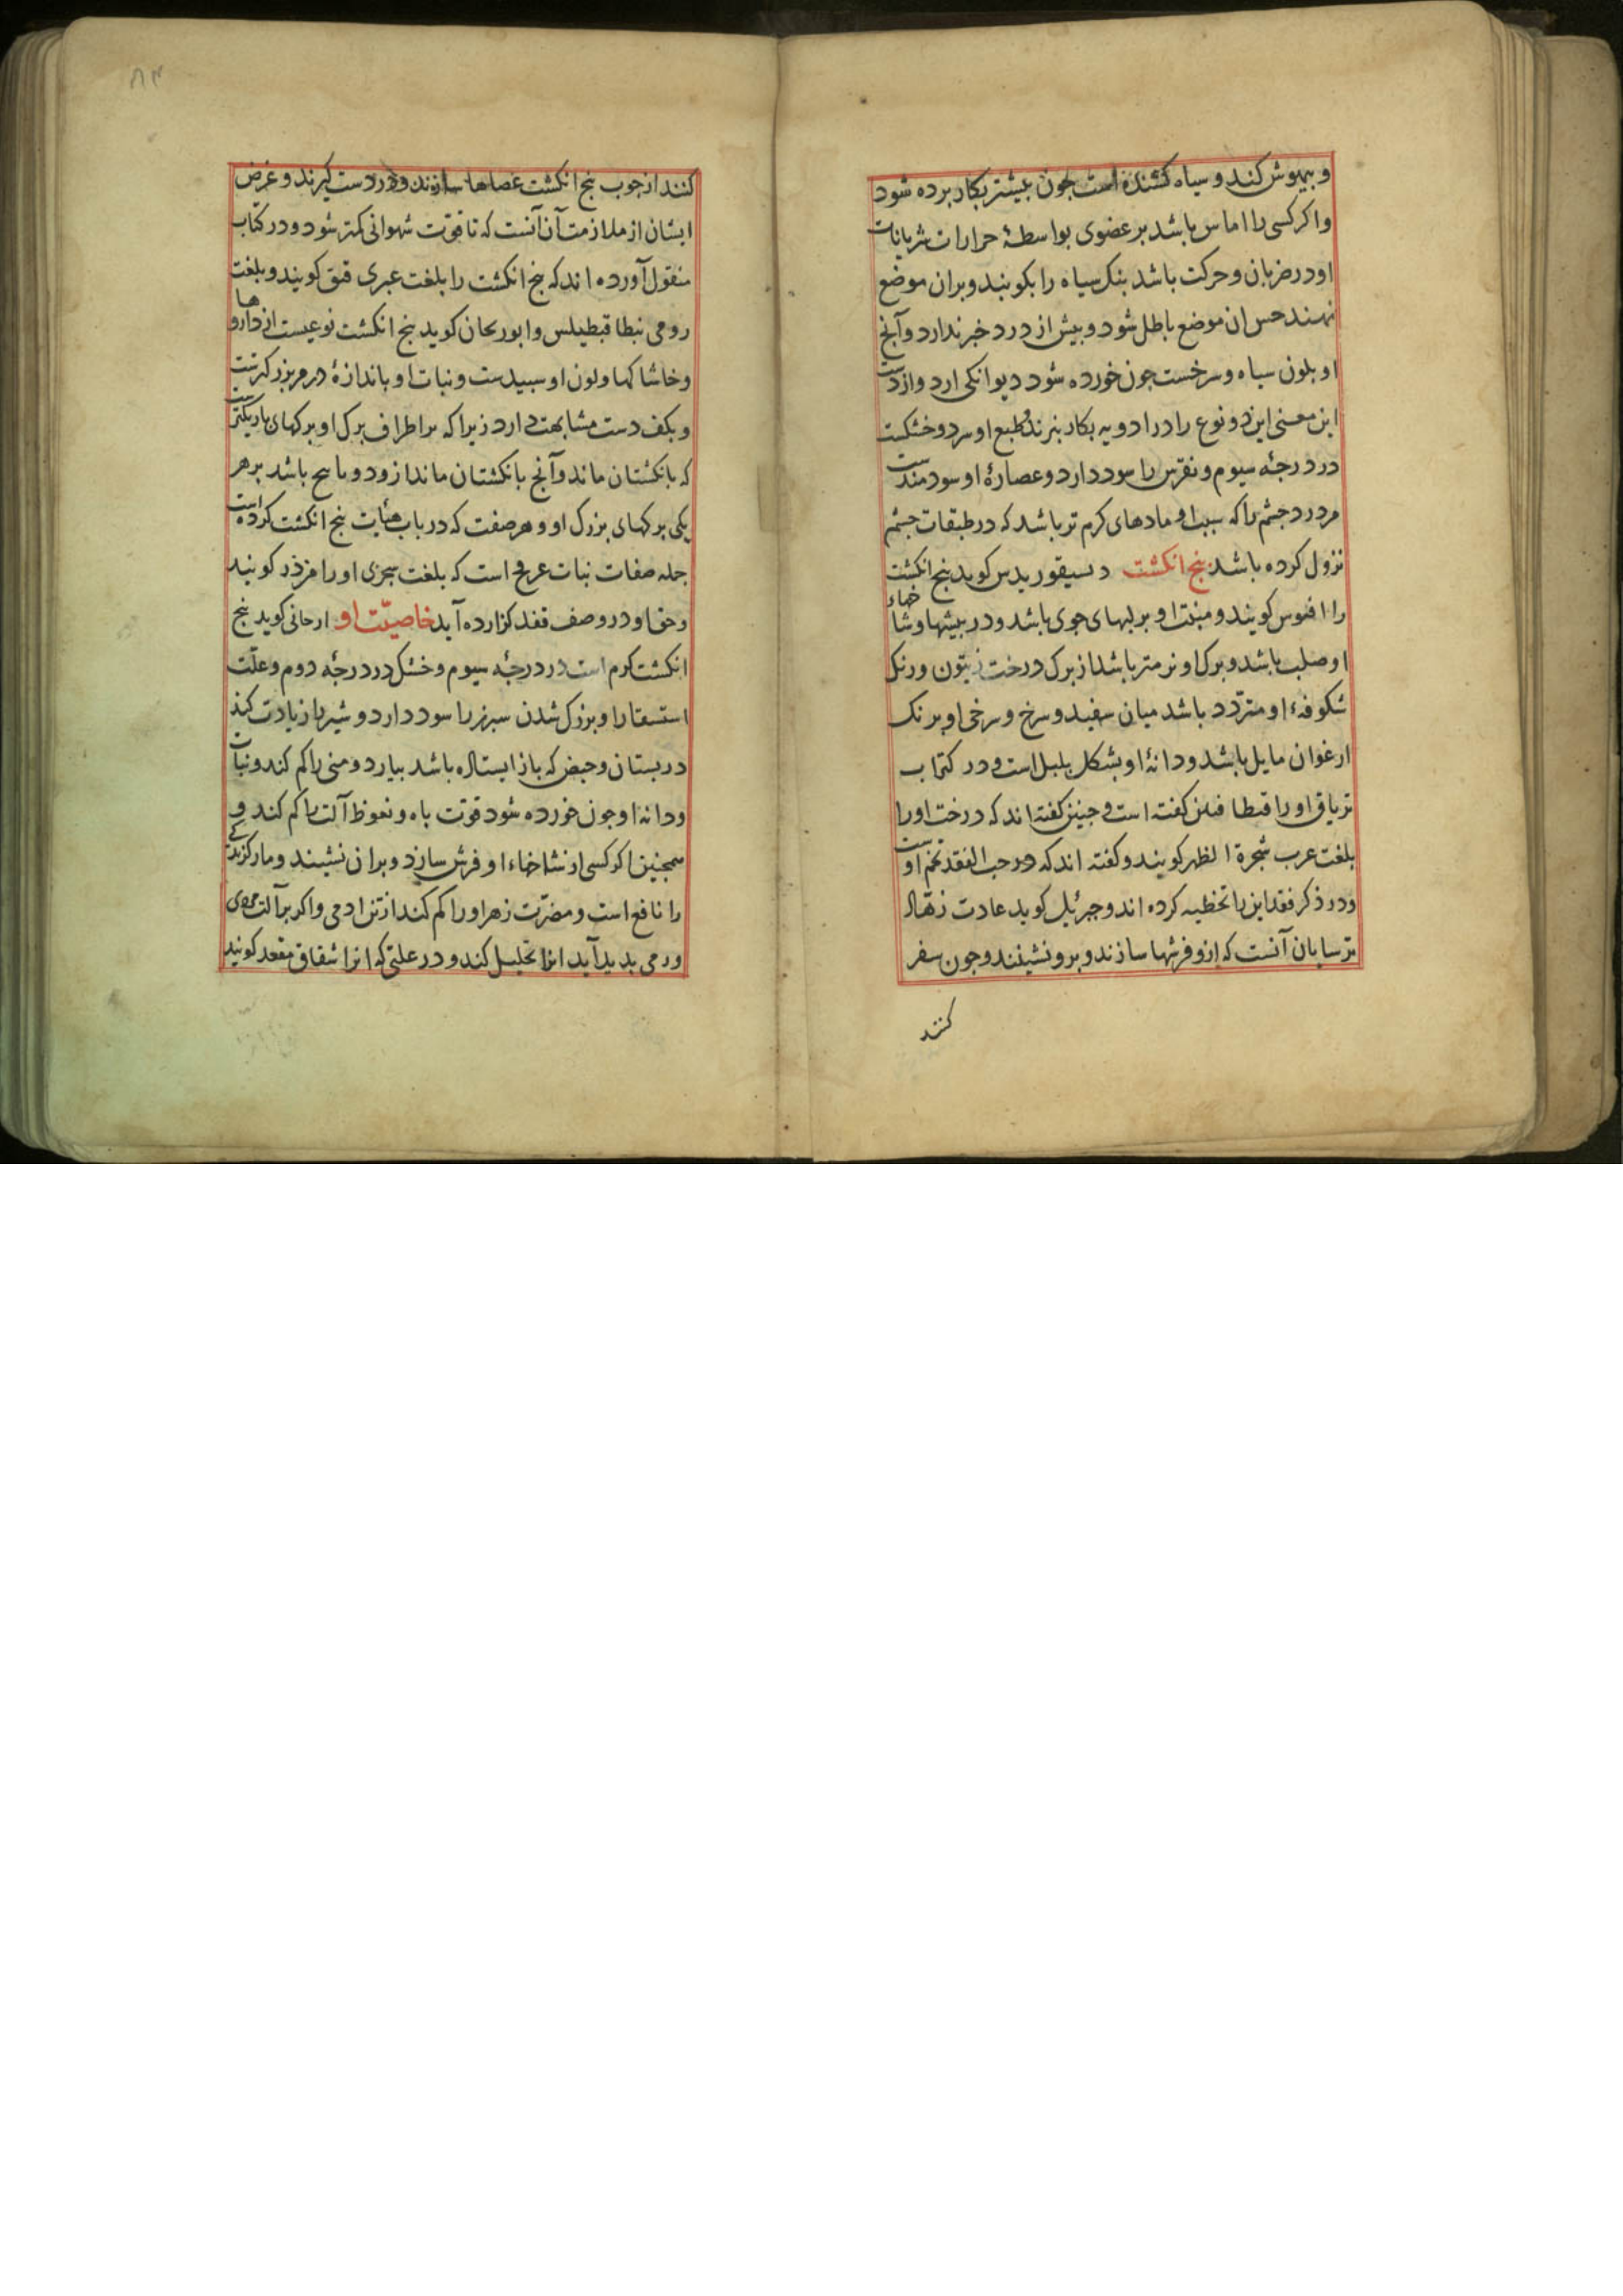 و بیهوش کند و سیاه کشنده است چون بیشتر بکار برده شود
واکر کسی را اماس باشد بر عضوی بواسطهٔ حرارات شریانات
اودر ضربان وحرکت باشد بنک سیاه را بکوبند وبران موضع
نهند حس ان موضع باطل شود و بیش از درد خبر ندارد وآنج
او بلون سیاه وسرخست جون خورده شود دیوانکی ارد واز دست
این معنی این دو نوع را در ادویه بکار نبرند وطبع او سرد وخشکست
در درجهٔ سیوم ونقرس را سود دارد وعصارهٔ او سودمندست
مر درد جشم را که سبب او مادهای کرم تر باشد که در طبقات جشم
نزول کرده باشد بنج انکشت دیسیقوریدس کوید بنج انکشت
را افنوس کویند ومنبت او بر لبهای جوی باشد ودر بیشها وشاخهاء
او صلب باشد وبرک او نرمتر باشد از برک درخت زیتون ورنک
شکوفهٔ او متردد باشد میان سفید وسرخ وسرخی او برنک
ارغوان مایل باشد ودانهٔ او بشکل بلبل است ودر کتاب
تریاق اورا قیطا فلن کفته است وجنین کفته اند که درخت اورا
بلغت عرب شجرة الظهر کویند وکفته اند که حب الفقد تخم اوست
ودر ذکر فقد این را تخطیه کرده اند وجبرئیل کوید عادت زهاد
ترسایان آنست که ازو فرشها سازند وبرو نشینند وجون سفر
کنند
کنند از جوب بنج انکشت عصاها سازند ودر دست کیرند وغرض
ایشان از ملازمت آن آنست که تا قوت شهوانی کمتر شود ودر کتاب
منقول آورده اند که بنج انکشت را بلغت عبری قنق کویند وبلغت
رومی نیطاقیطیلس وابوریحان کوید بنج انکشت نوعیست از داروها
وخاشاکها ولون او سبیدست ونبات او باندازهٔ درم بزرکترست
وبکف دست مشابهت دارد زیرا که بر اطراف برک او برکهای باریکترست
که بانکشتان ماند وآنج بانکشتان ماند از دو تا پنج باشد بر هر
یکی برکهای بزرک او وهر صفت که در باب هیأت بنج انکشت کرده است
جمله صفات نبات عرفج است که بلغت سجزی اورا مرذر کویند
وحق او در وصف فقد کزارده آید خاصیت او ارجانی کوید بنج
انکشت کرم است در درجهٔ سیوم وخشک در درجهٔ دوم وعلت
استسقا را وبزرک شدن سبرز را سود دارد وشیر را زیادت کند
در بستان وحیض که باز ایستاده باشد بیارد ومنی را کم کند ونبات
ودانهٔ او جون خورده شود قوت باه ونعوظ آلت را کم کند و
همجنین اکر کسی از شاخهاء او فرش سازد وبران نشیند ومار کزیدکی
را نافع است ومضرت زهر اورا کم کند از تن ادمی واکر بر آلت مردی
ورمی بدید آید انرا تحلیل کند ودر علتی که انرا شقاق مقعد کویند